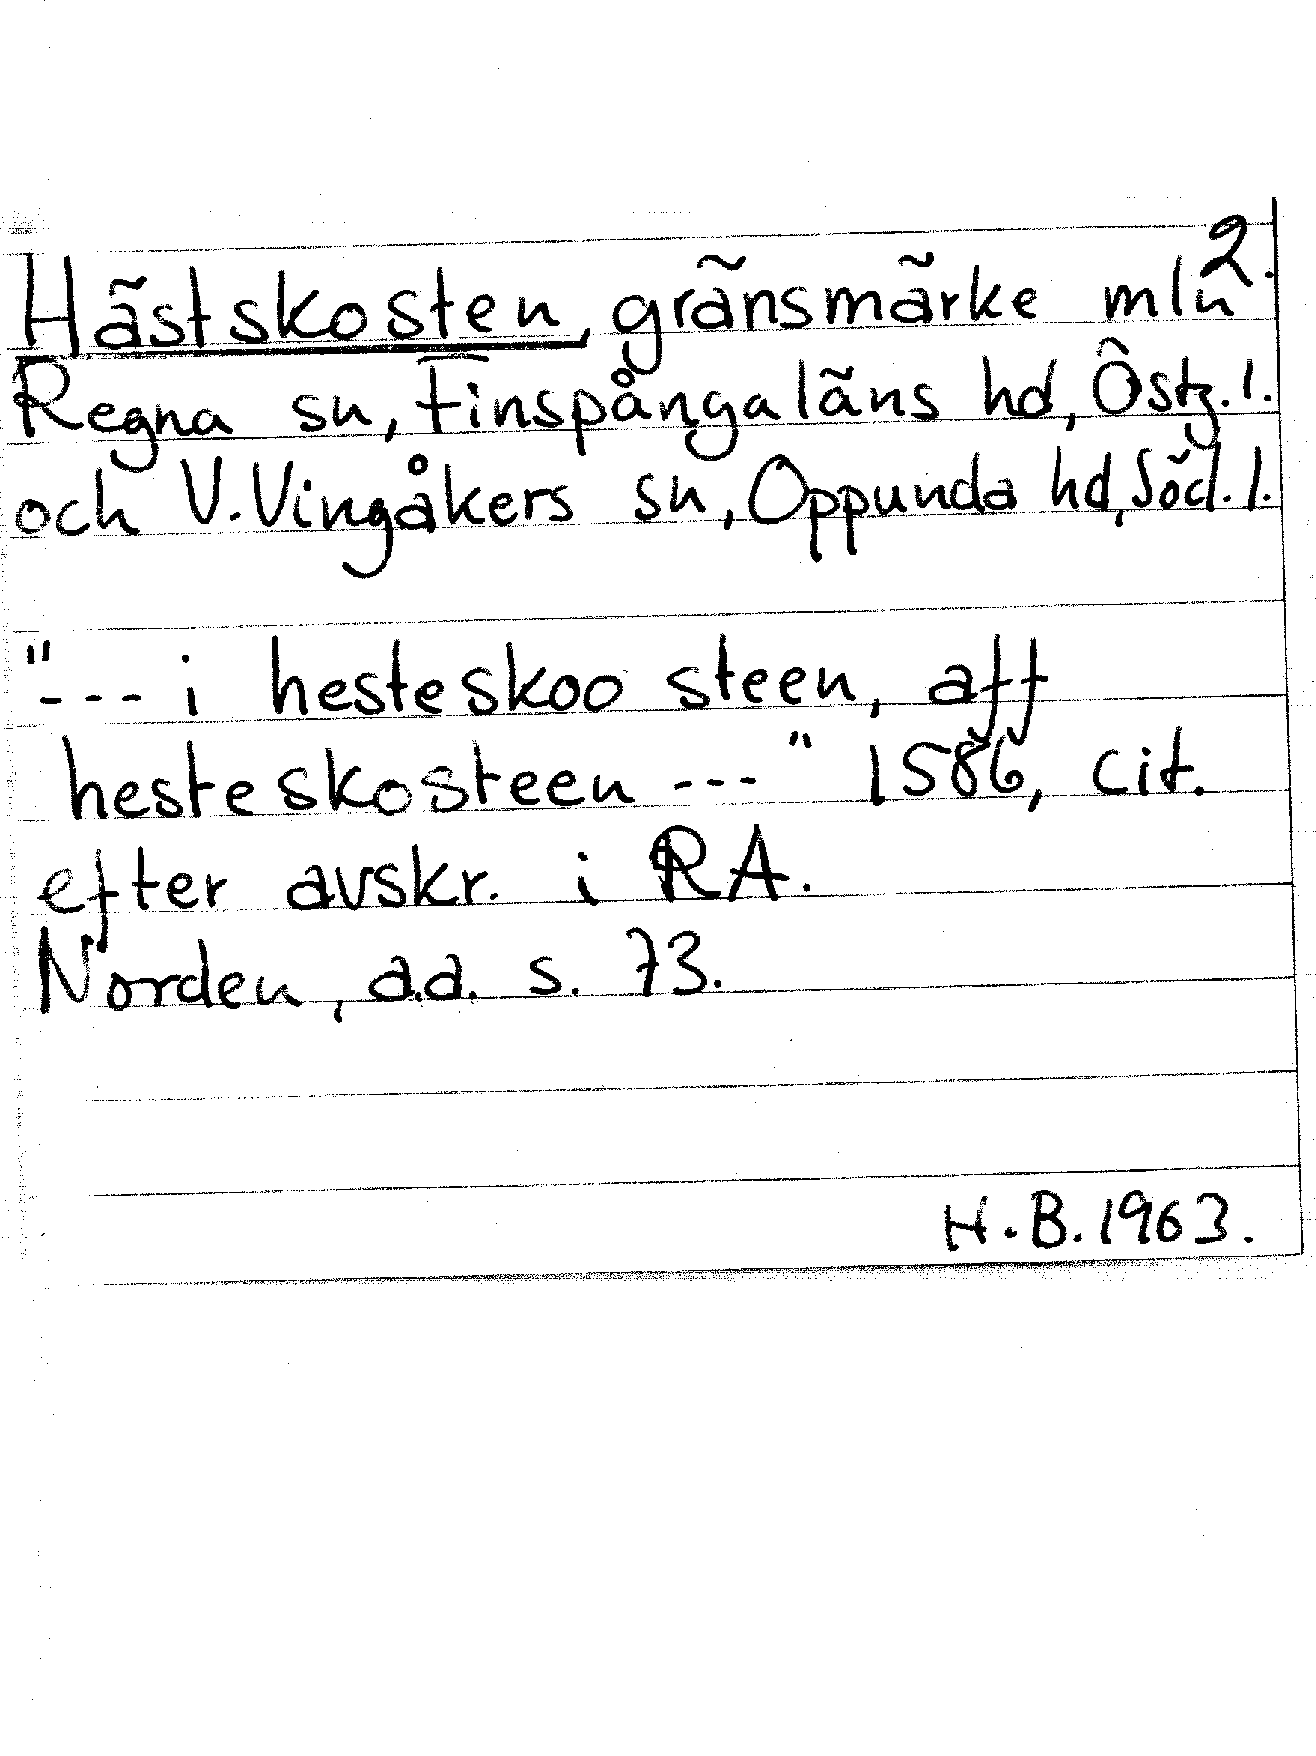 2.
Hästskosten, gränsmärke mln
Regna sn, Finspångaläns hd, Östg.l.
och V.Vingåkers sn, Oppunda hd, Söd.l.
"--- i hesteskoo steen, aff
hesteskosteen ---" 1586, cit.
efter avskr. i RA.
Norden, a.a. s. 73.
H.B.1963.